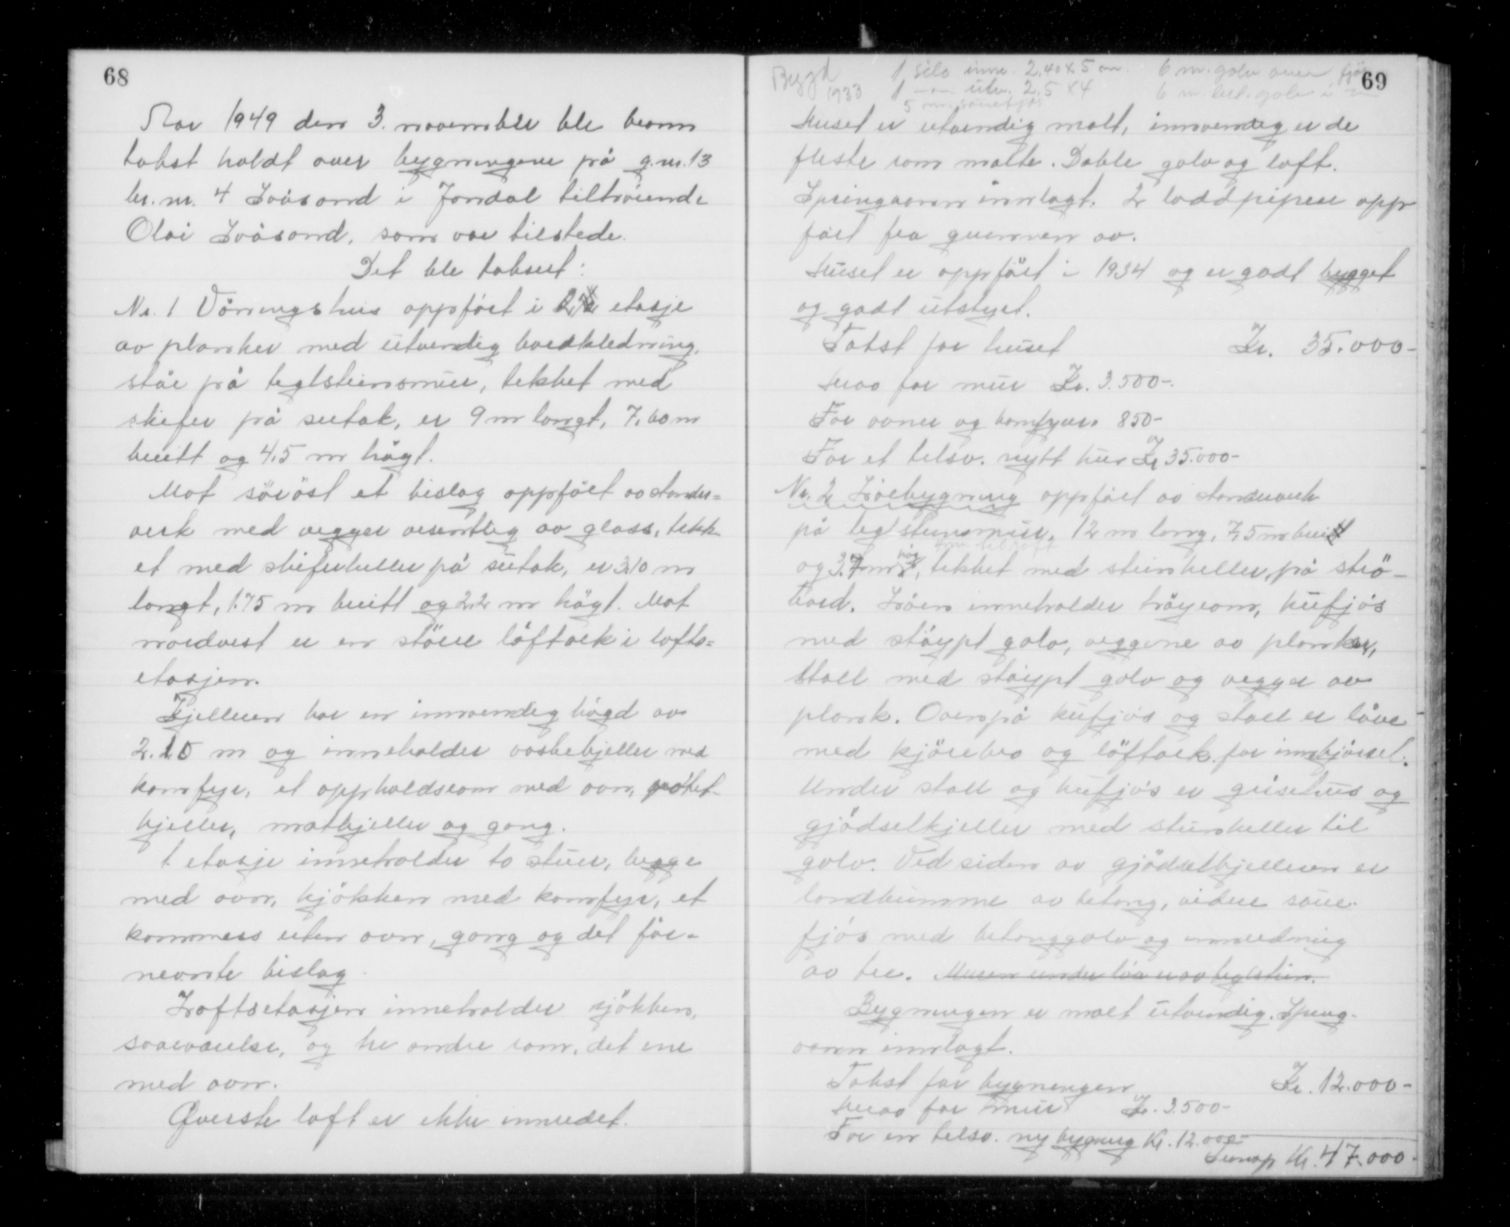 68
År 1949 den 3. november ble brann
takst holdt over bygningene på g.nr. 13
br.nr. 4 Svåsand i Jondal tilhørende
Olai Svåsand, som var tilstede.
Det ble taksert:
Nr. 1 Våningshus oppført i 2 etasje
av planker med utvendig bordkledning,
står på teglsteinsmur, tekket med
skifer på sutak, er 9 m langt, 7,60 m
breitt og 4,5 m høgt.
Mot søröst et bislag oppført av stender=
verk med vegger vesentlig av glass, tekk-
et med skiferheller på sutak, er 3.10 m
langt, 1.75 m breitt og 2.2 m högt. Mot
nordvest er en större löftark i lofts=
etasjen.
Kjelleren har en innvendig högd av
2.15 m og inneholder vaskekjeller med
komfyr, et oppholdsrom med ovn, potet-
kjeller, matkjeller og gang.
1 etasje inneholder to stuer, begge
med ovn, kjökken med komfyr, et
kammers uten ovn, gang og det för-
nevnte bislag.
Loftsetasjen inneholder kjökken,
soveværelse, og tre andre rom, det ene
med ovn.
Øverste loft er ikke innredet.
69
Bygd 1933
1 silo inne. 2,40 x 5 m.
1 —"— utv. 2,5 x 4
6 m. golv over fjös
Huset er utvendig malt, innvendig er de
fleste rom malte. Doble golv og loft.
Springvann innlagt. 2 loddpiper opp
fört fra grunnen av.
Huset er oppfört i 1934 og er godt bygget
og godt utstyrt.
Takst for huset Kr. 35.000-
Herav for mur Kr. 3.500-
For ovner og komfyrer 850-
For et tilsv. nytt hus Kr 35.000-
Nr. 2 Löebygning oppfört av stenderverk
på teglsteinsmur, 12 m lang, 7,5 m brei
og 3.7 m høg, tekket med steinheller på strö-
bord. Löen inneholder höyrom, kufjös
med stöypt golv, veggene av planker,
stall med stöypt golv og vegger av
plank. Ovenpå kufjös og stall er låve
med kjörebro og löftark for innkjörsel.
Under stall og kufjös er grisehus og
gjödselkjeller med steinheller til
golv. Ved siden av gjödselkjelleren er
landkumme av betong, videre saue-
fjös med betonggolv og innredning
av tre. Muren under löa er av teglstein.
Bygningen er malt utvendig. Spring-
vann innlagt.
Takst for bygningen Kr. 12.000-
Herav for mur Kr. 3.500-
For en tilsv. ny bygning Kr. 12.000-
Sum Kr. 47.000-